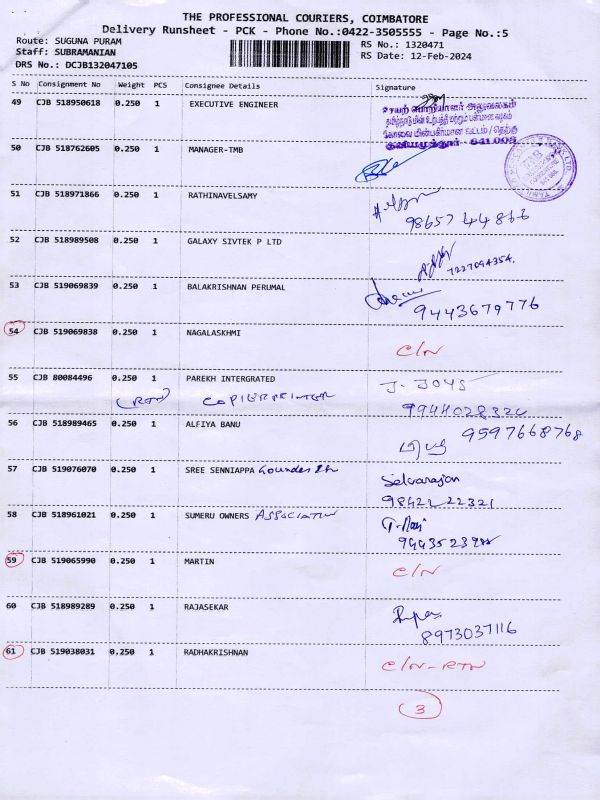 THE PROFESSIONAL COURIERS, COIMBATORE
Delivery Runsheet - PCK - Phone No.:0422-3505555 - Page No.:5
Route: SUGUNA PURAM
RS No.: 1320471
Staff: SUBRAMANIAN
RS Date: 12-Feb-2024
DRS No.: DCJB132047105
S No Consignment No Weight PCS Consignee Details Signature
49 CJB 518950618 0.250 1 EXECUTIVE ENGINEER
செயற் பொறியாளர் அலுவலகம்
தமிழ்நாடு மின் உற்பத்தி மற்றும் பகிர்மான கழகம்
கோவை மின்பகிர்மான வட்டம் / தெற்கு
குனியமுத்தூர் - 641 008
50 CJB 518762605 0.250 1 MANAGER-TMB
TMB
51 CJB 518971866 0.250 1 RATHINAVELSAMY
98657 44866
52 CJB 518989508 0.250 1 GALAXY SIVTEK P LTD
7227094354.
53 CJB 519069839 0.250 1 BALAKRISHNAN PERUMAL
9443679776
54 CJB 519069838 0.250 1 NAGALASKHMI
C/N
55 CJB 80084496 0.250 1 PAREKH INTERGRATED J. JOYS
(RTN) COPIERPRINTER
9944028320
56 CJB 518989465 0.250 1 ALFIYA BANU
9597668768
57 CJB 519076070 0.250 1 SREE SENNIAPPA Gounder
Selvarajan
98422 22321
58 CJB 518961021 0.250 1 SUMERU OWNERS ASSOCIATION
T. Mani
59 CJB 519065990 0.250 1 MARTIN
C/N
60 CJB 518989289 0.250 1 RAJASEKAR
8973037116
61 CJB 519038031 0.250 1 RADHAKRISHNAN
C/N-RTN
3